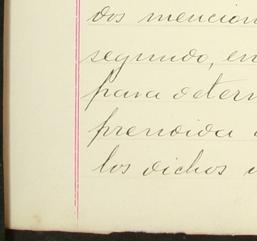 dos mencion
segundo, en
para deter
prendida
los dichos